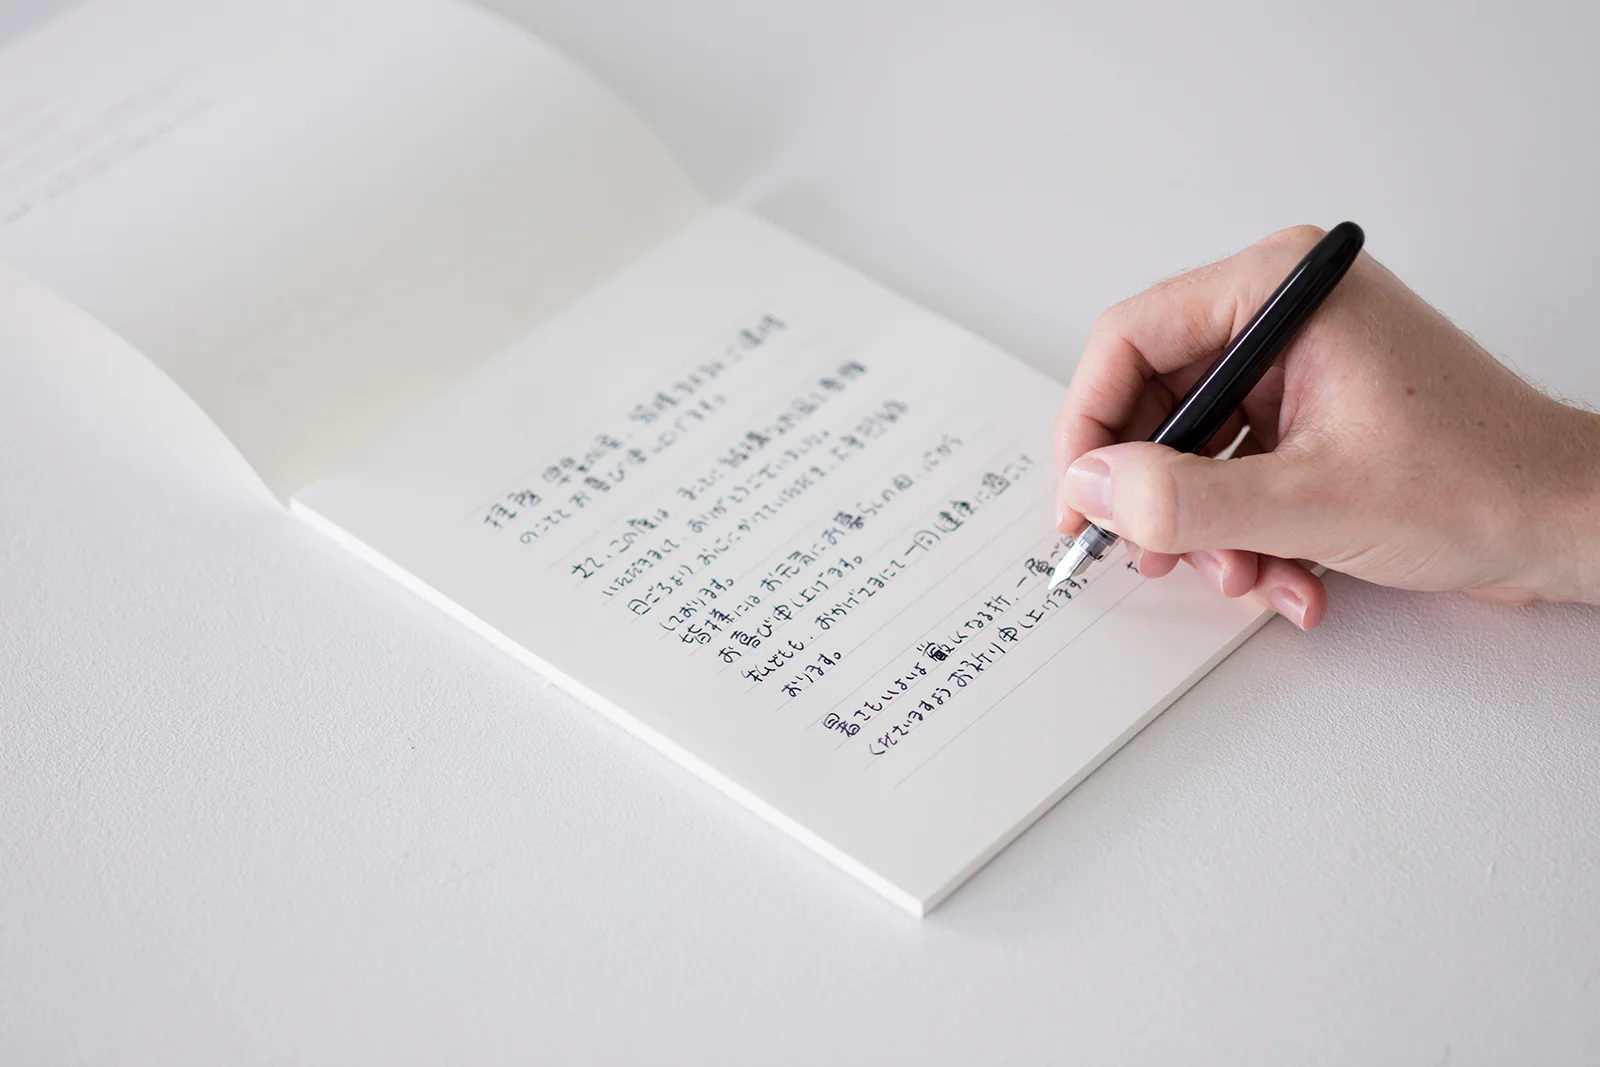 拝啓 盛夏の候、皆様ますますご健勝
のこととお喜び申し上げます。
さて、この度は まことに結構なお品を
いただきまして、ありがとうございました。
日ごろより お心にかけていただき、
しております。
皆様には お元気に お暮らしの由、心から
お喜び申し上げます。
私どもも、おかげさまにて 一同健康に過ごして
おります。
暑さもいよいよ厳しくなる折、一層ご
くださいますよう お祈り申し上げます。